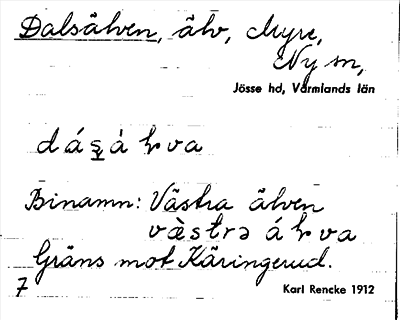 Dalsälven, älv, Myre,
Ny sn,
Jösse hd, Värmlands län
dáʂàɽva
Binamn: Västra älven
væ̀strə áɽva
Gräns mot Käringerud.
7
Karl Rencke 1912